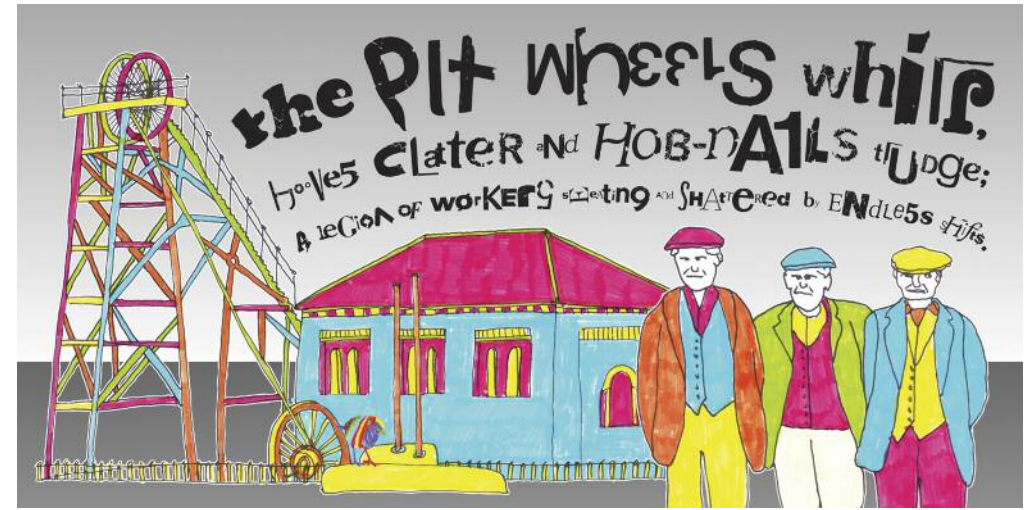 the PIt wheeLS whirr,
HooVes CLatteR aNd HOB-nAILS trUDge;
A leGioN oF worKErS sweating and SHAtTeRed by ENdLess shifts.